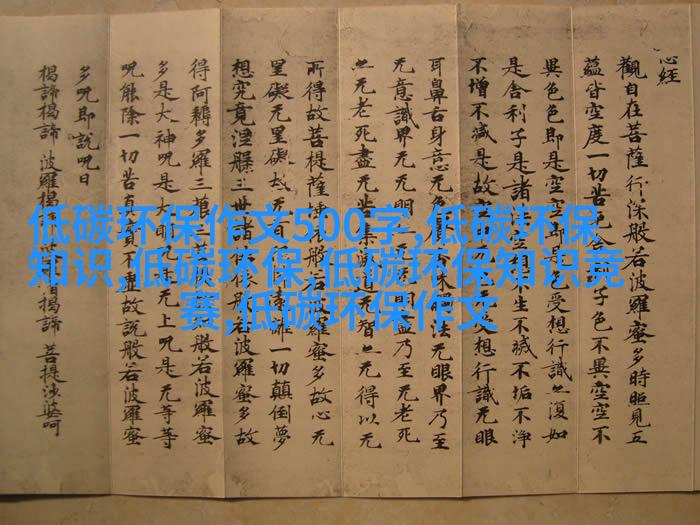 心经
觀自在菩薩行深般若波羅蜜多時照見五
蘊皆空度一切苦厄舍利子色不異空空不
異色色即是空空即是色受想行識亦復如
是舍利子是諸法空相不生不滅不垢不淨
不增不減是故空中无色无受想行識无眼
耳鼻舌身意无色聲香味觸法无眼界乃至
无意識界无无明亦无无明盡乃至无老死
亦无老死盡无苦集滅道无智亦无得以无
所得故菩提薩埵依般若波羅蜜多故心无
罣礙无罣礙故无有恐怖遠離一切顛倒夢
想究竟涅槃三世諸佛依般若波羅蜜多故
得阿耨多羅三藐三菩提故知般若波羅蜜
多是大神呪是大明呪是无上呪是无等等
呪能除一切苦真實不虛故說般若波羅蜜
多呪即說呪曰
揭諦揭諦 波羅揭諦 波羅僧揭諦 菩提娑婆呵
低碳环保作文500字,低碳环保
知识,低碳环保,低碳环保知识竞
赛,低碳环保作文